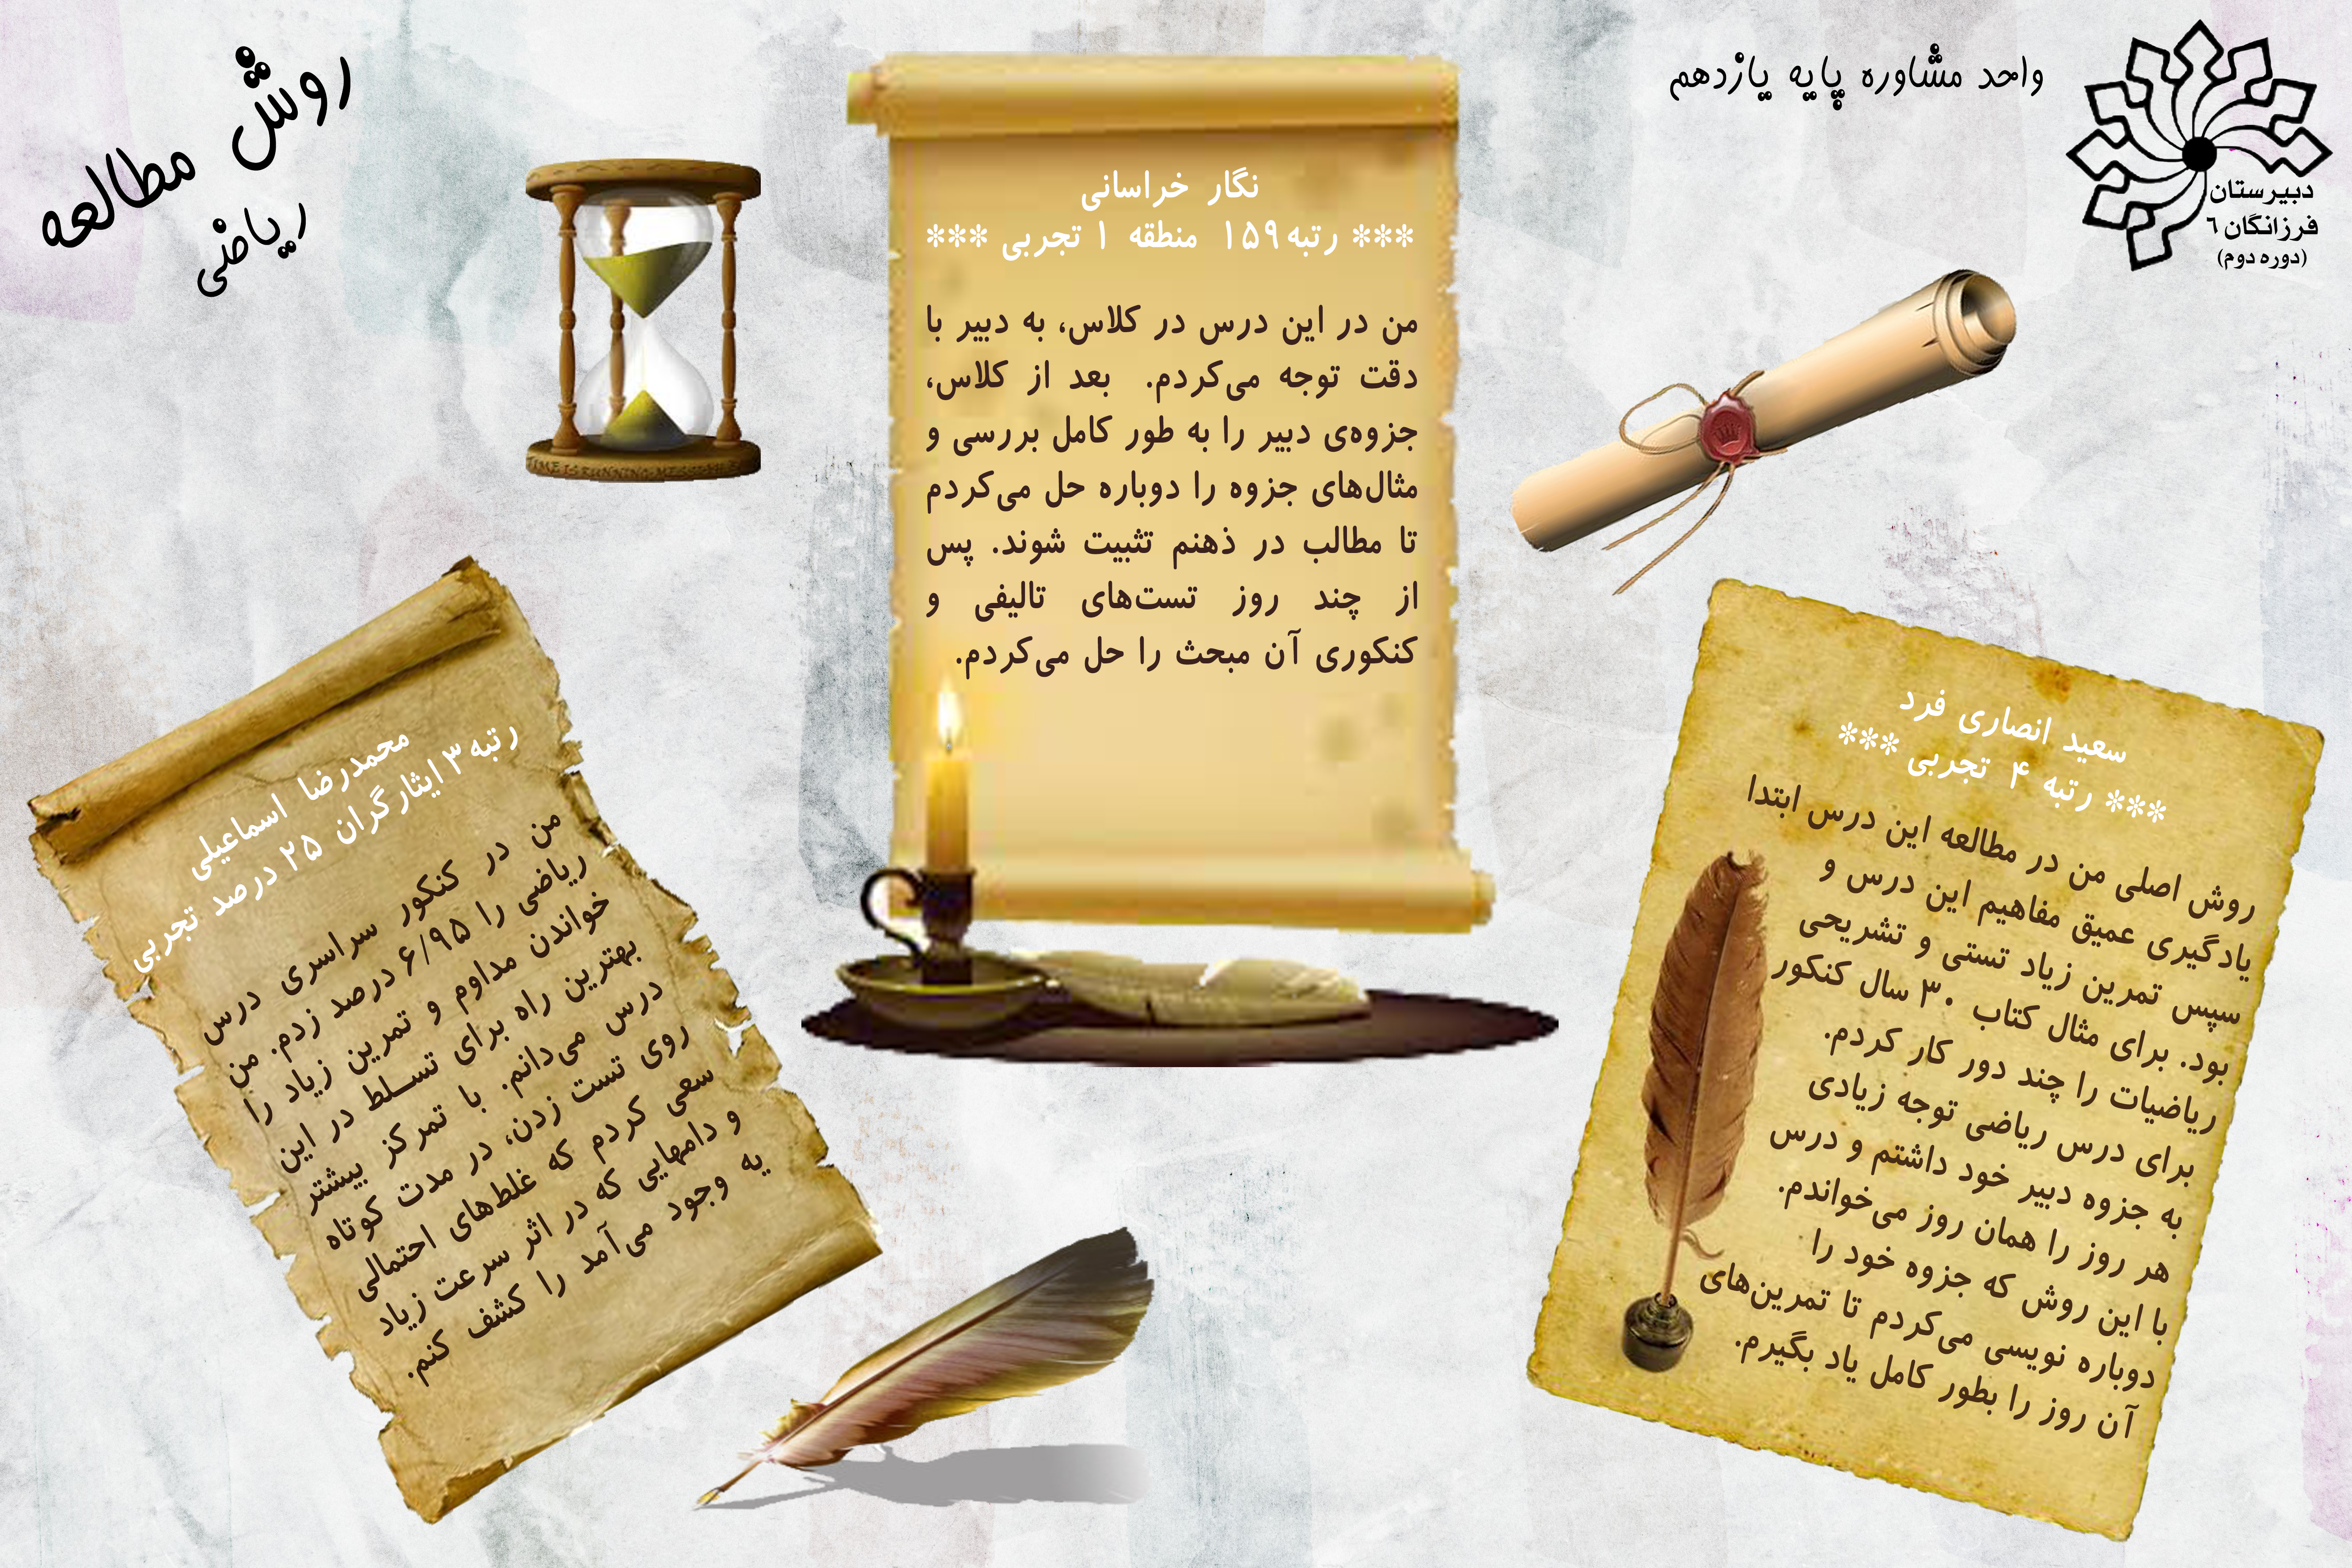 واحد مشاوره پایه یازدهم
دبیرستان
فرزانگان ٦
(دوره دوم)
روش مطالعه
ریاضی
نگار خراسانی
*** رتبه ۱۵۹ منطقه ۱ تجربی ***
من در این درس در کلاس، به دبیر با
دقت توجه می‌کردم. بعد از کلاس،
جزوه‌ی دبیر را به طور کامل بررسی و
مثال‌های جزوه را دوباره حل می‌کردم
تا مطالب در ذهنم تثبیت شوند. پس
از چند روز تست‌های تالیفی و
کنکوری آن مبحث را حل می‌کردم.
سعید انصاری فرد
*** رتبه ۴ تجربی ***
روش اصلی من در مطالعه این درس ابتدا
یادگیری عمیق مفاهیم این درس و
سپس تمرین زیاد تستی و تشریحی
بود. برای مثال کتاب ۳۰ سال کنکور
ریاضیات را چند دور کار کردم.
برای درس ریاضی توجه زیادی
به جزوه دبیر خود داشتم و درس
هر روز را همان روز می‌خواندم.
با این روش که جزوه خود را
دوباره نویسی می‌کردم تا تمرین‌های
آن روز را بطور کامل یاد بگیرم.
محمدرضا اسماعیلی
رتبه ۳ ایثارگران ۲۵ درصد تجربی
من در کنکور سراسری درس
ریاضی را ۶/۹۵ درصد زدم. من
خواندن مداوم و تمرین زیاد را
بهترین راه برای تسلط در این
درس می‌دانم. با تمرکز بیشتر
روی تست زدن، در مدت کوتاه
سعی کردم که غلط‌های احتمالی
و دامهایی که در اثر سرعت زیاد
یه وجود می‌آمد را کشف کنم.
TIME IS RUNNING